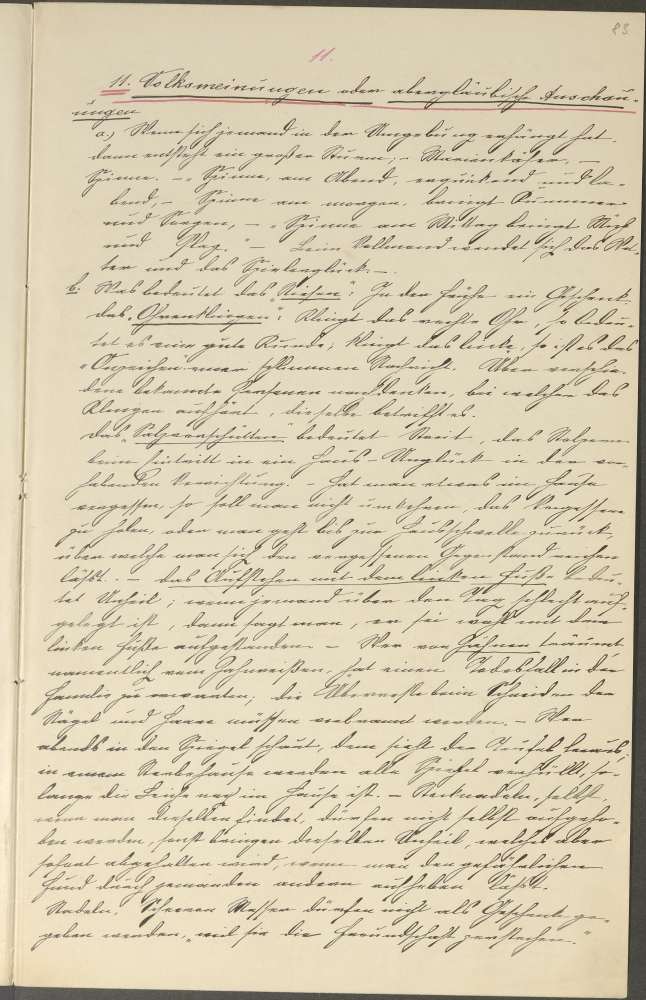 83
11.
11. Volksmeinungen oder abergläubische Anschau-
ungen
a, Wenn sich jemand in der Umgebung erhängt hat,
dann entsteht ein großer Sturm; - Marienkäfer, -
Spinne. - "Spinne, am Abend, erquickend und la-
bend, - Spinne am morgen, bringt Kummer
und Sorgen, - "Spinne am Mittag bringt Glück
und Tag." - Beim Vollmond wendet sich das Wet-
ter und das Spielerglück. -
b. Was bedeutet das "Niesen": In der Frühe ein Geschenk.
das "Ohrenklingen": Klingt das rechte Ohr, so bedeu-
tet es eine gute Kunde; klingt das linke, so ist es das
Anzeichen einer schlimmen Nachricht. Über verschie-
dene bekannte Personen nachdenken, bei welcher das
Klingen aufhört, dieselbe betrifft es.
das "Salzverschütten" bedeutet Streit, das Stolpern
beim Eintritt in ein Haus - Unglück in der vor-
habenden Verrichtung. - Hat man etwas im Hause
vergessen, so soll man nicht umkehren, das Vergessene
zu holen, oder man geht bis zur Hausschwelle zurück,
über welche man sich den vergessenen Gegenstand reichen
läßt. - das Aufstehen mit dem linken Fuße bedeu-
tet Unheil; wenn jemand über den Tag schlecht auf-
gelegt ist, dann sagt man, er sei wohl mit dem
linken Fuße aufgestanden. - Wer von Zähnen träumt
namentlich vom Zahnreißen, hat einen Todesfall in der
Familie zu erwarten; die Überreste beim Schneiden der
Nägel und Haare müssen verbrannt werden. - Wer
abends in den Spiegel schaut, dem sieht der Teufel heraus;
in einem Sterbehause werden alle Spiegel verhüllt, so-
lange die Leiche noch im Hause ist. - Stecknadeln, selbst,
wenn man dieselben findet, dürfen nicht selbst aufgeho-
ben werden, sonst bringen dieselben Unheil, welches aber
sofort abgehalten wird, wenn man den gefährlichen
Fund durch jemanden andern aufheben läßt.
Nadeln, Scheren Messer dürfen nicht als Geschenk ge-
geben werden, "weil sie die Freundschaft zerstechen."